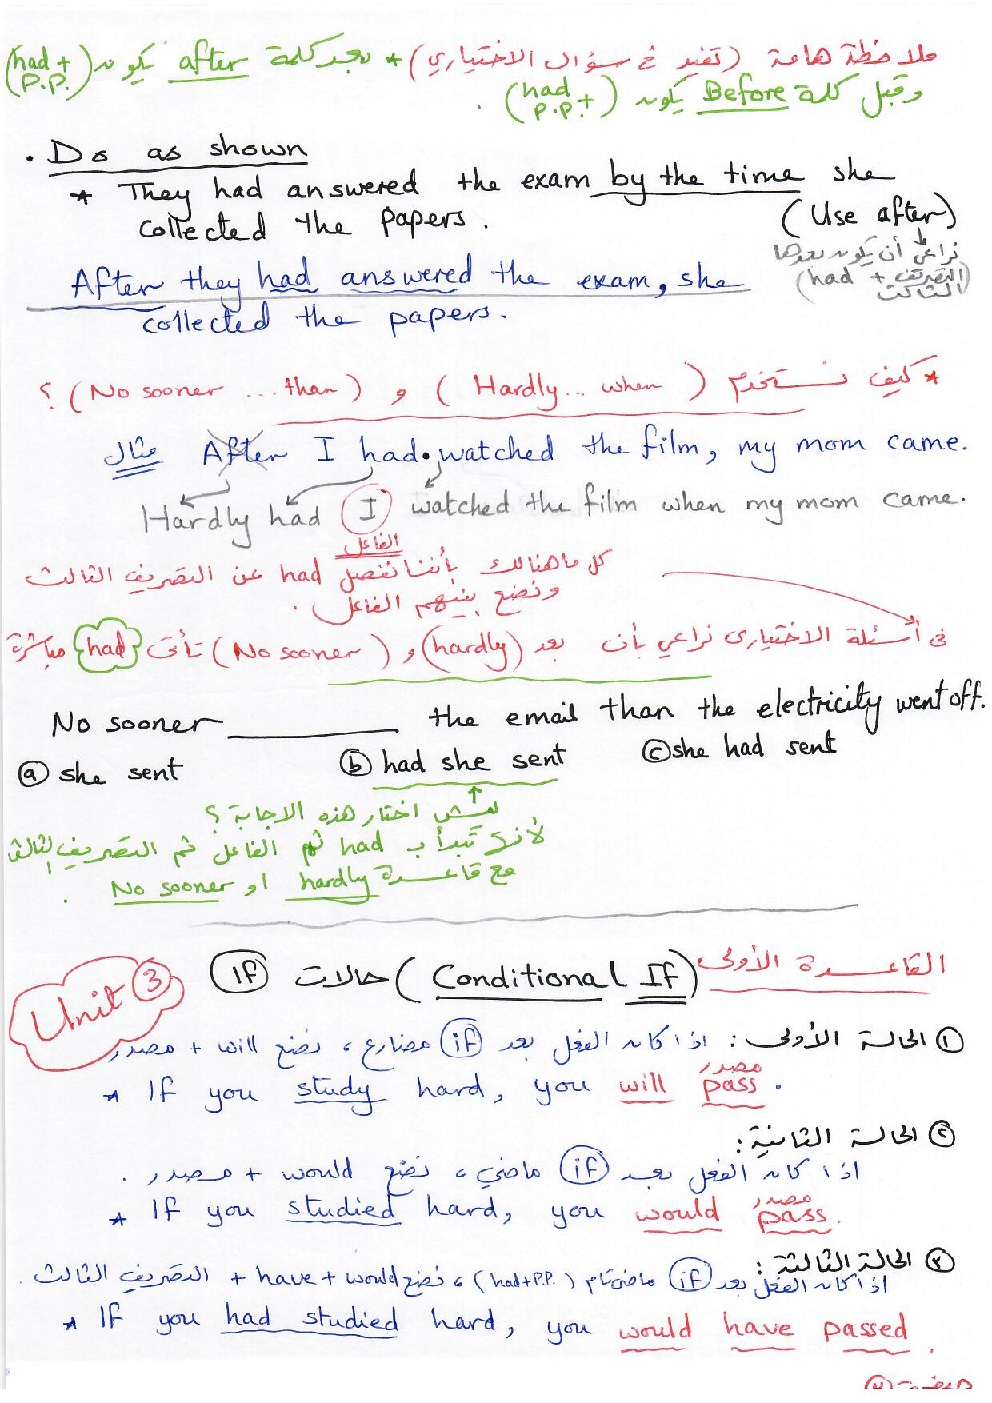 ملاحظة هامة (تفيد في سؤال الاختياري) * بعد كلمة after يكون (had + P.P.)
وقبل كلمة Before يكون (had + P.P.) .
. Do as shown
* They had answered the exam by the time she
collected the papers. (Use after)
نراعي أن يكون بعدها
(had + التصريف الثالث)
After they had answered the exam, she
collected the papers.
* كيف نستخدم (Hardly... when) و (No sooner ...than) ؟
مثال After I had watched the film, my mom came.
Hardly had I watched the film when my mom came.
الفاعل
كل ما هنالك بأننا نفصل had عن التصريف الثالث
ونضع بينهم الفاعل .
في أسئلة الاختياري نراعي بأن بعد (hardly) و (No sooner) تأتي had مباشرة
No sooner ________ the email than the electricity went off.
ⓐ she sent ⓑ had she sent ⓒ she had sent
ليش اختار هذه الاجابة ؟
لأنها تبدأ ب had ثم الفاعل ثم التصريف الثالث
مع قاعدة hardly او No sooner .
Unit 3
القاعدة الأولى (Conditional If) حالات If
① الحالة الأولى : اذا كان الفعل بعد if مضارع ، نضع will + مصدر
مصدر
* If you study hard, you will pass .
② الحالة الثانية :
اذا كان الفعل بعد if ماضي ، نضع would + مصدر .
مصدر
* If you studied hard, you would pass.
③ الحالة الثالثة :
اذا كان الفعل بعد if ماضي تام (had + P.P.) ، نضع would + have + التصريف الثالث .
* If you had studied hard, you would have passed .